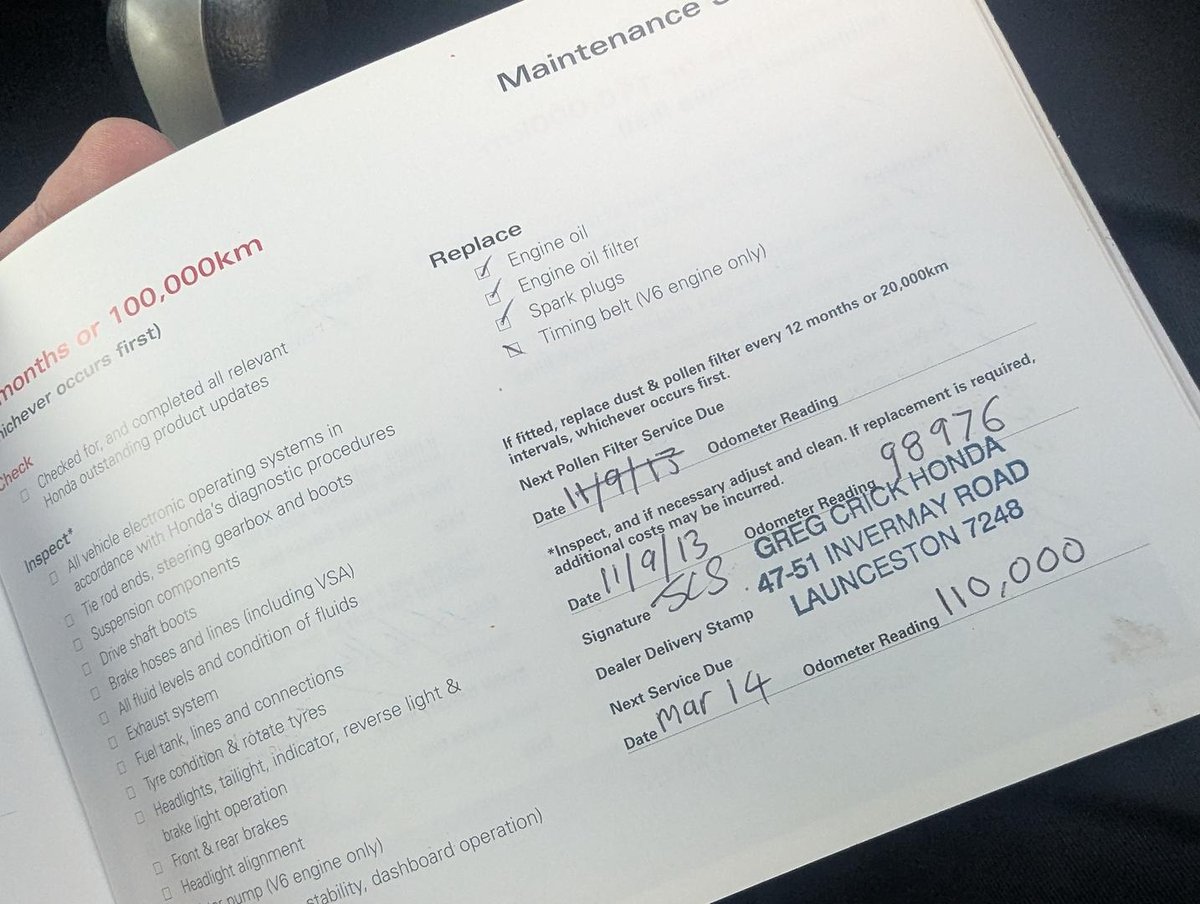 Maintenance
months or 100,000km
whichever occurs first)
Check
Checked for, and completed all relevant
Honda outstanding product updates
Inspect*
All vehicle electronic operating systems in
accordance with Honda's diagnostic procedures
Tie rod ends, steering gearbox and boots
Suspension components
Drive shaft boots
Brake hoses and lines (including VSA)
All fluid levels and condition of fluids
Exhaust system
Fuel tank, lines and connections
Tyre condition & rotate tyres
Headlights, tailight, indicator, reverse light &
brake light operation
Front & rear brakes
Headlight alignment
pump (V6 engine only)
stability, dashboard operation)
Replace
Engine oil
Engine oil filter
Spark plugs
Timing belt (V6 engine only)
If fitted, replace dust & pollen filter every 12 months or 20,000km
intervals, whichever occurs first.
Next Pollen Filter Service Due
Date 11/9/13 Odometer Reading
*Inspect, and if necessary adjust and clean. If replacement is required,
additional costs may be incurred.
Date 11/9/13 Odometer Reading 98976
Signature SCS
GREG CRICK HONDA
47-51 INVERMAY ROAD
LAUNCESTON 7248
Dealer Delivery Stamp
Next Service Due
Date Mar 14 Odometer Reading 110,000